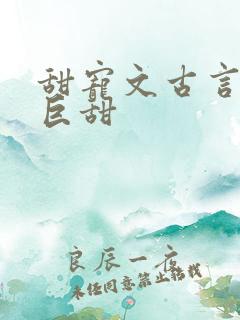 甜宠文古言
巨甜
良辰一夜
未经同意禁止转载